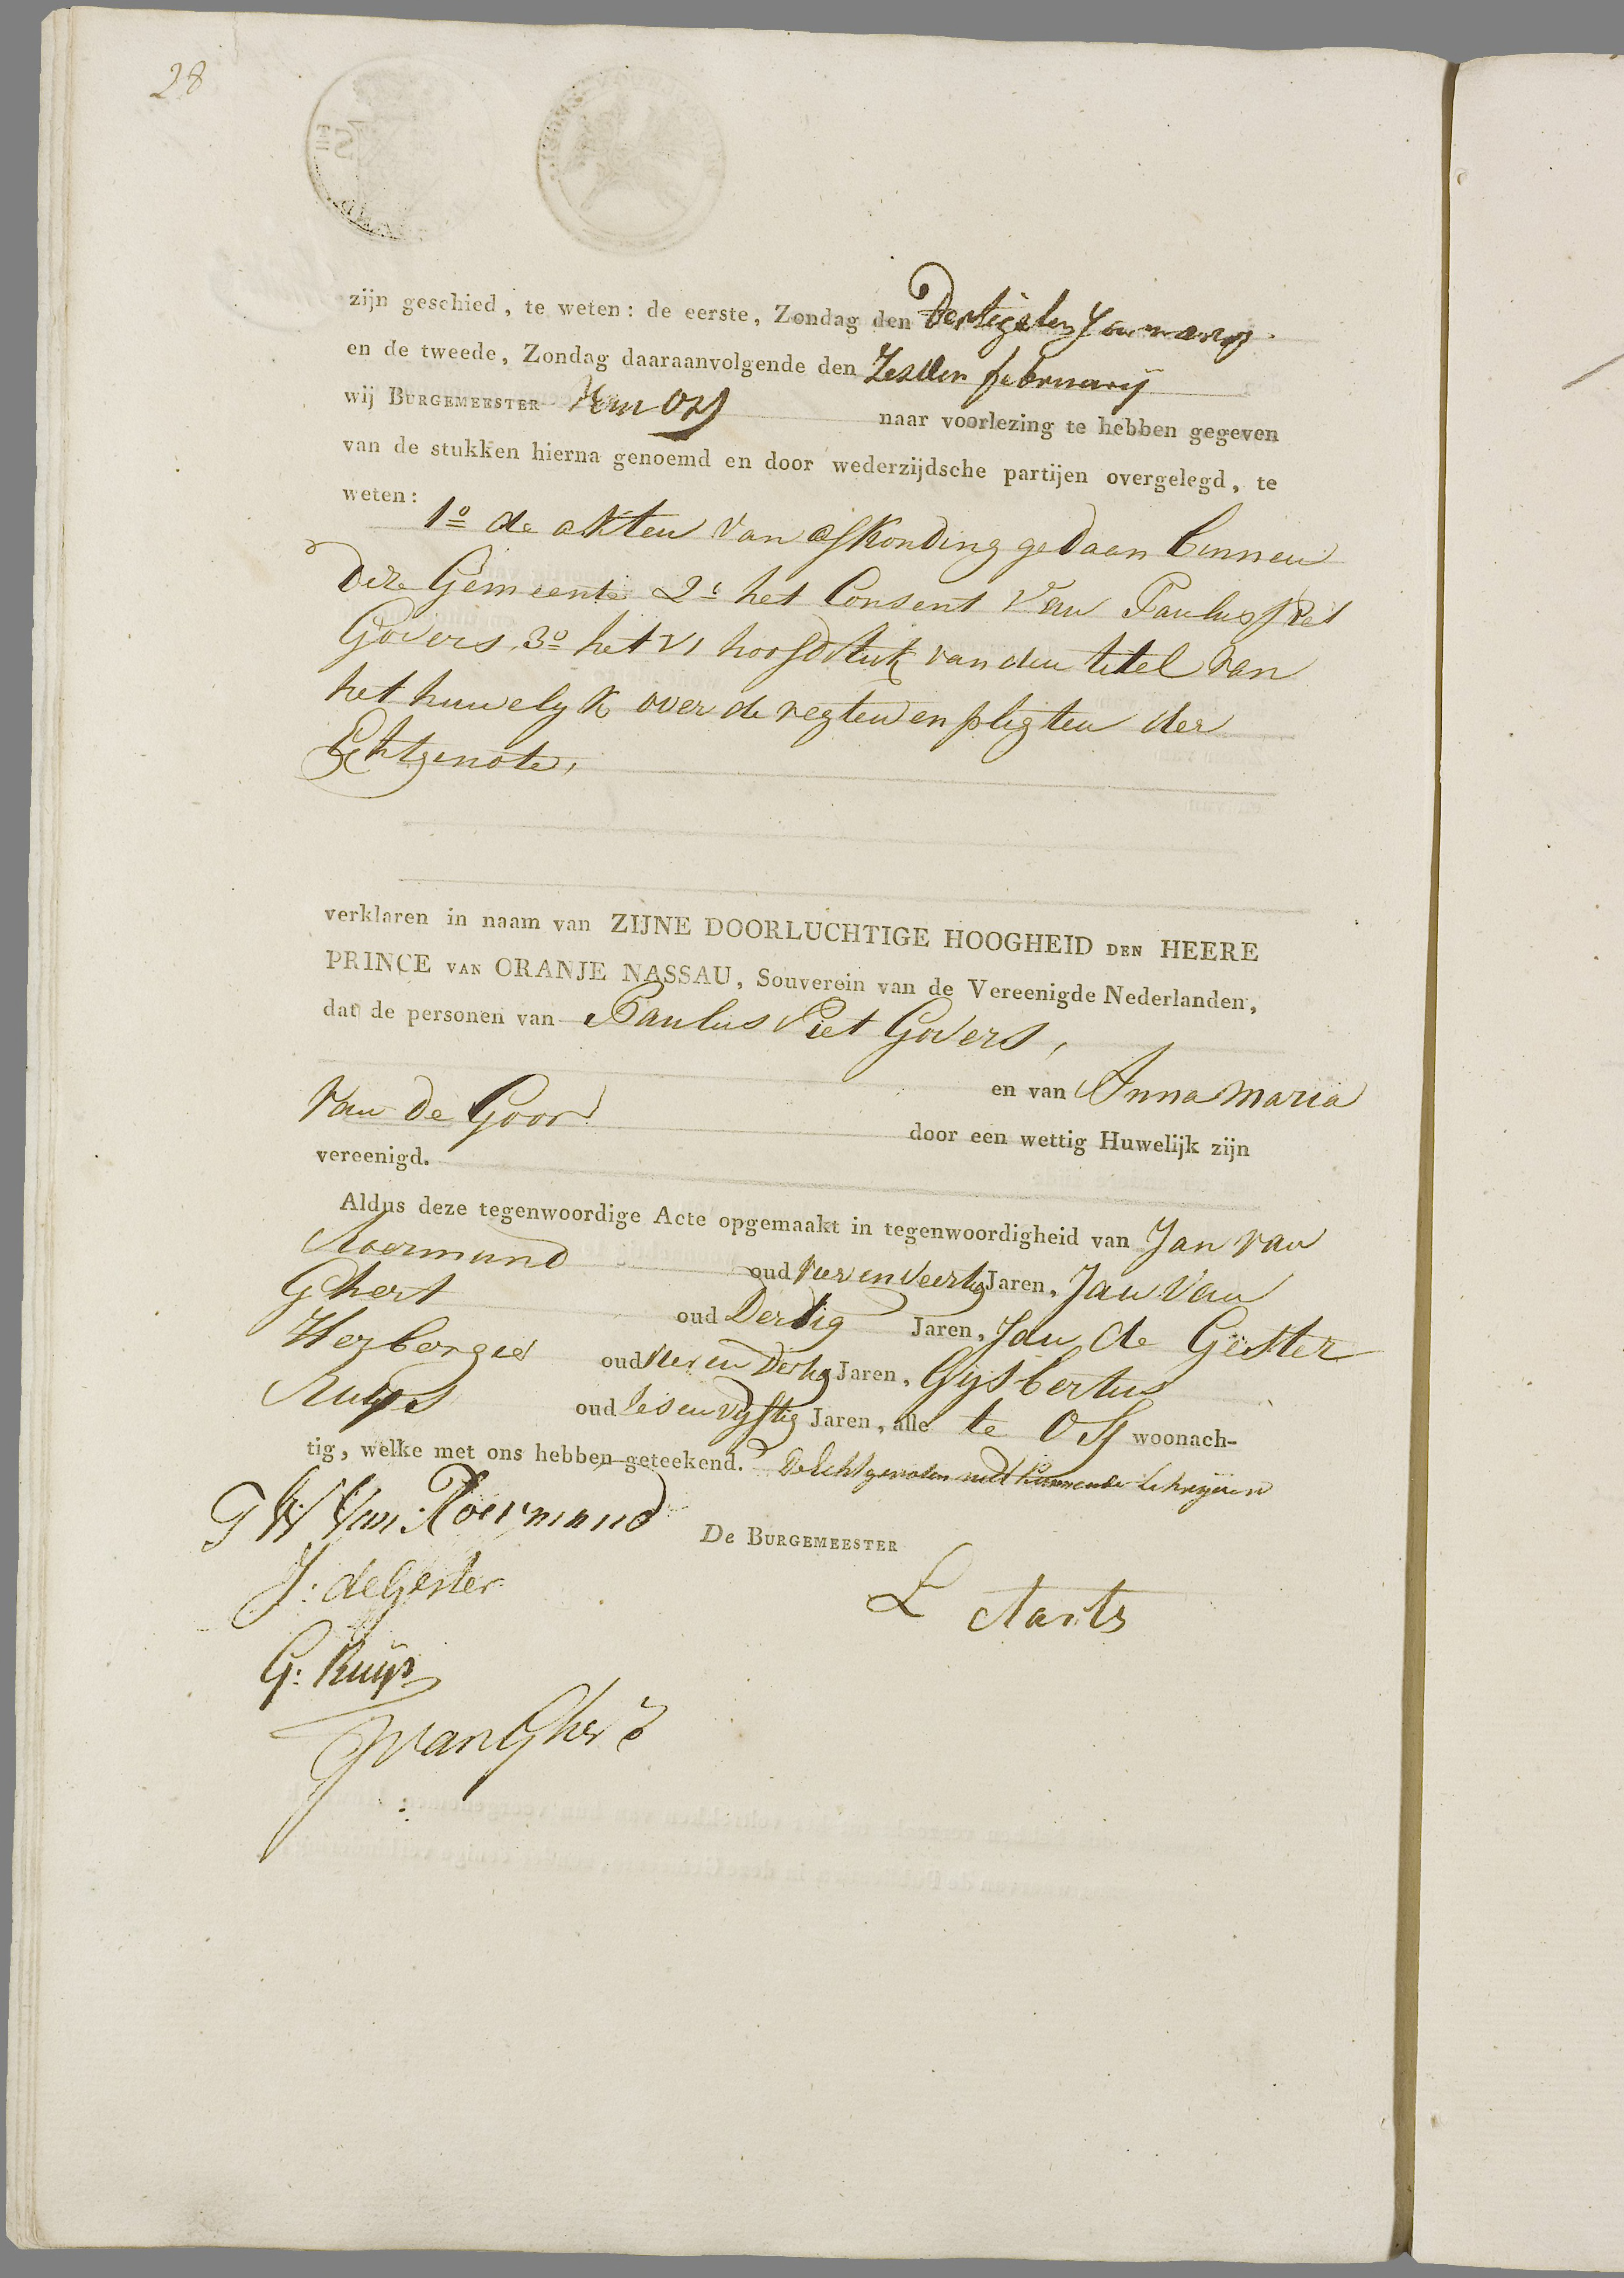 28
zijn geschied, te weten: de eerste, Zondag den Dertigsten Januarij
en de tweede, Zondag daaraanvolgende den Zesden februarij
wij BURGEMEESTER van Oss naar voorlezing te hebben gegeven
van de stukken hierna genoemd en door wederzijdsche partijen overgelegd, te
weten:
1o de akten van afkonding gedaan binnen
deze Gemeente 2e het Consent van Paulus Piet
Govers, 3o het VI hoofdstuk van den titel van
het huwelyk over de regten en pligten der
Echtgenote,
verklaren in naam van ZIJNE DOORLUCHTIGE HOOGHEID DEN HEERE
PRINCE VAN ORANJE NASSAU, Souverein van de Vereenigde Nederlanden,
dat de personen van Paulus Piet Govers,
en van Anna Maria
van de Goor door een wettig Huwelijk zijn
vereenigd.
Aldus deze tegenwoordige Acte opgemaakt in tegenwoordigheid van Jan van
Roermund oud vier en veertig Jaren, Jan van
Ghert oud Dertig Jaren, Jan de Gester
Herbergier oud vier en dertig Jaren, Gijsbertus
Ruijs oud Ses en vijftig Jaren, alle te Oss woonach-
tig, welke met ons hebben geteekend. de Echtgenoten niet kunnende schrijven
G W van Roermund
De BURGEMEESTER
J: de Gester
L Aarts
G: Ruijs
J van Ghert